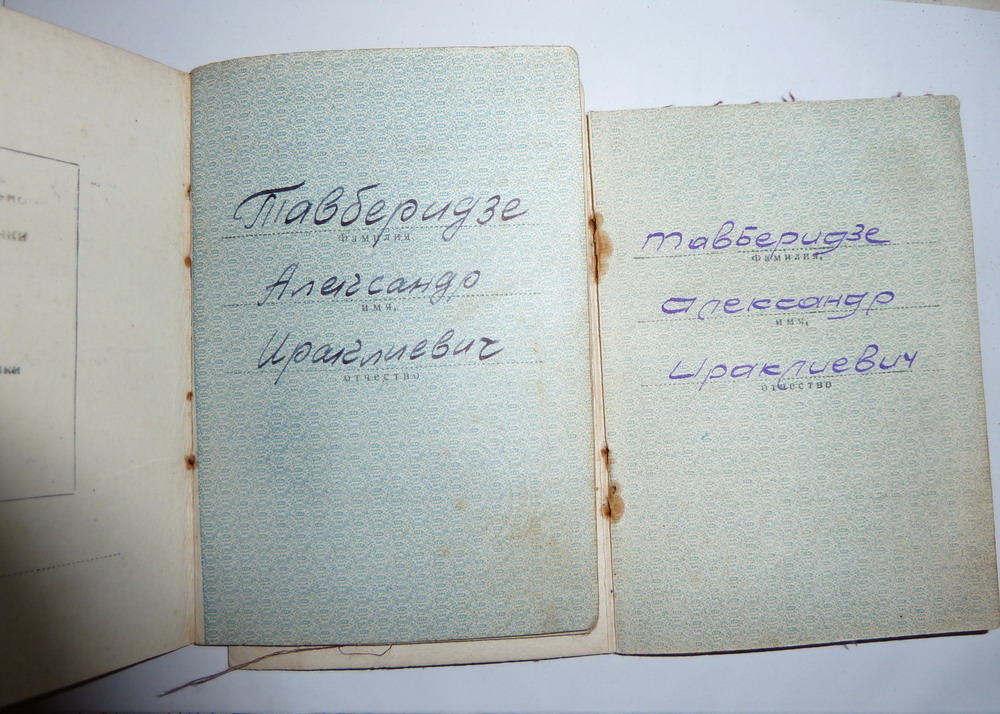 Тавберидзе
фамилия,
Александр
имя,
Ираклиевич
отчество
Тавберидзе
фамилия,
Александр
имя,
Ираклиевич
отчество